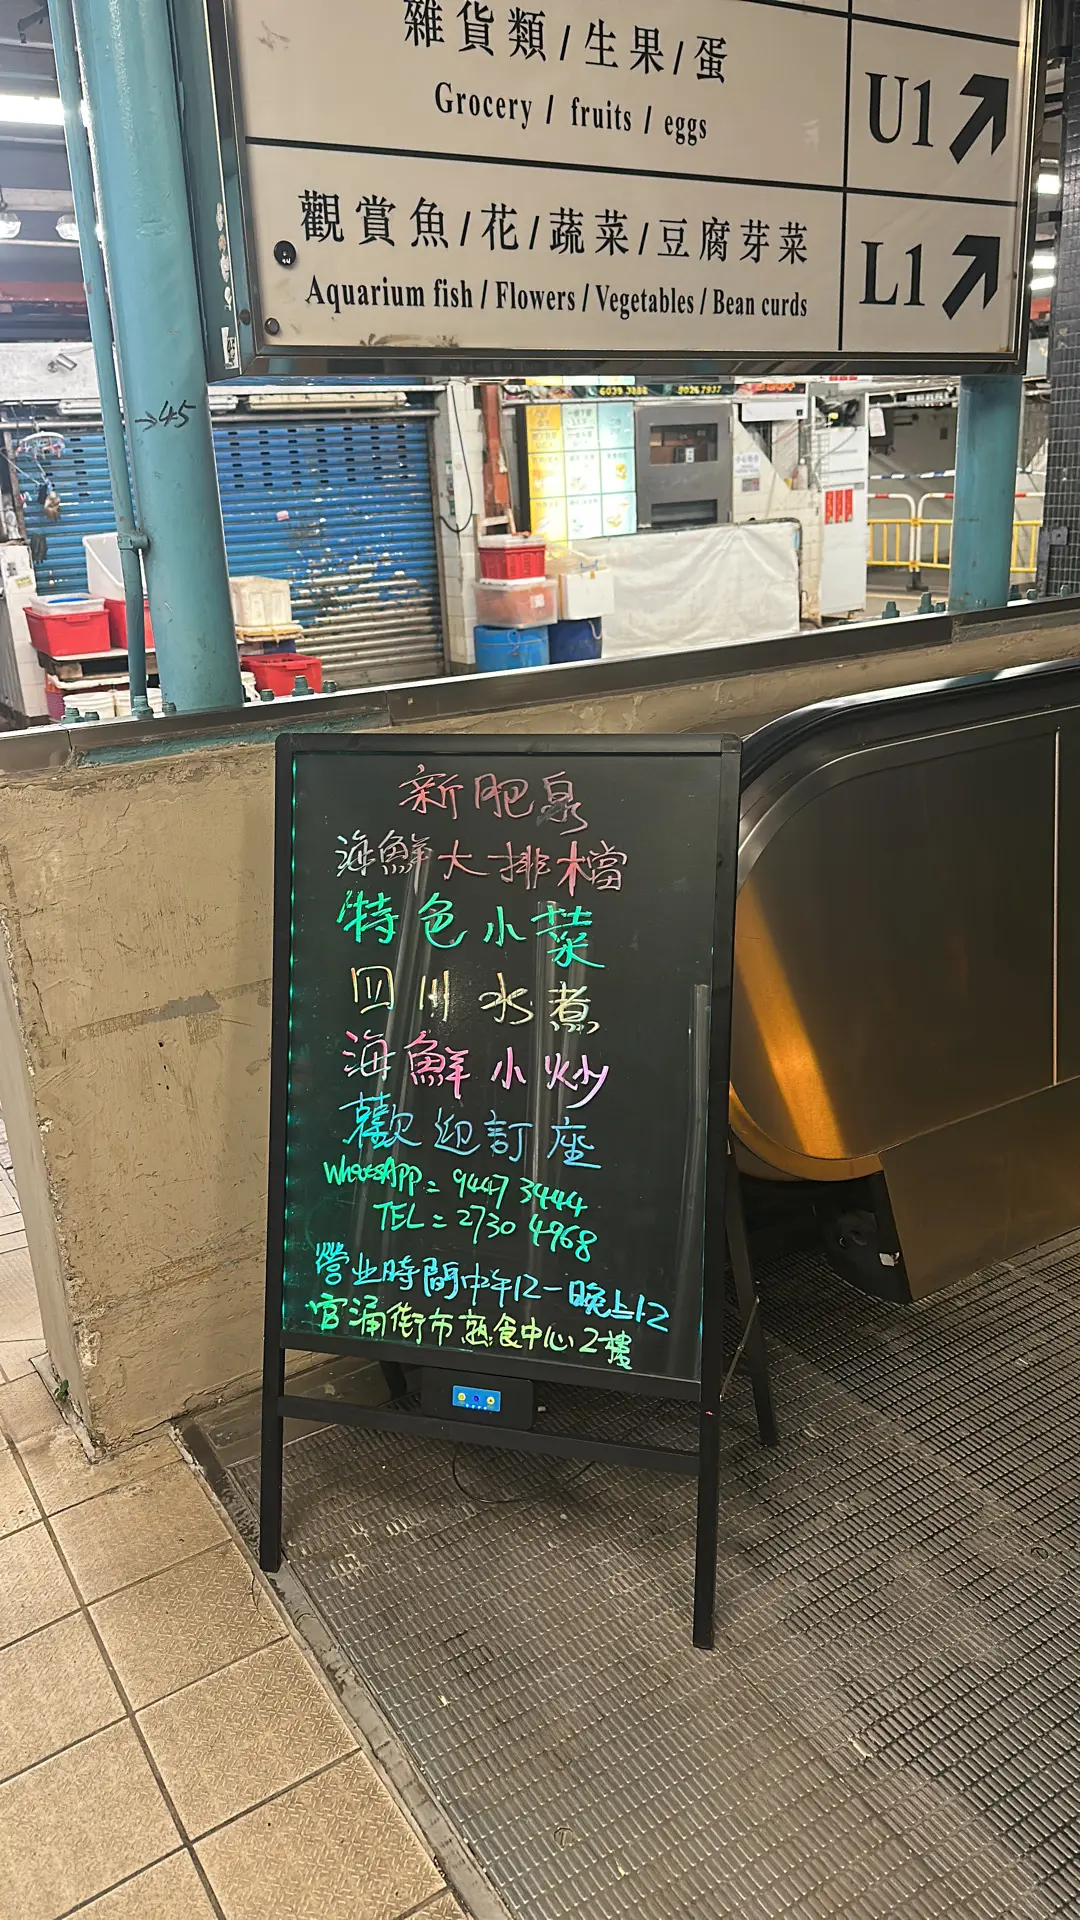 雜貨類/生果/蛋
Grocery / fruits / eggs
U1
觀賞魚/花/蔬菜/豆腐芽菜
Aquarium fish / Flowers / Vegetables / Bean curds
L1
→45
新肥泉
海鮮大排檔
特色小菜
四川水煮
海鮮小炒
歡迎訂座
WhatsAPP = 9447 3444
TEL = 2730 4968
營业時間中午12一晚上12
官涌街市熟食中心2樓